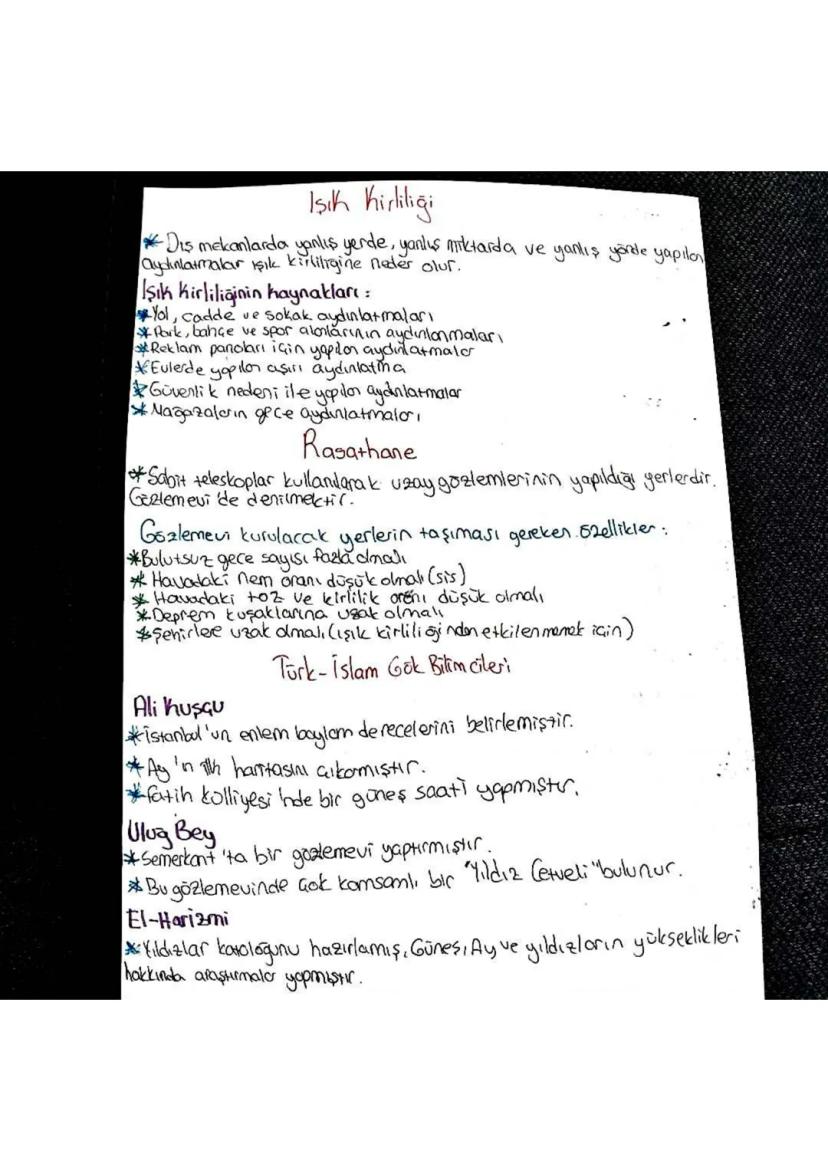 Işık Kirliliği
* Dış mekanlarda yanlış yerde, yanlış miktarda ve yanlış yönde yapılan
aydınlatmalar ışık kirliliğine neden olur.
Işık Kirliliğinin kaynakları :
* Yol, cadde ve sokak aydınlatmaları
* Park, bahçe ve spor alanlarının aydınlanmaları
* Reklam panoları için yapılan aydınlatmalar
* Evlerde yapılan aşırı aydınlatma
* Güvenlik nedeni ile yapılan aydınlatmalar
* Mağazaların gece aydınlatmaları
Rasathane
* Sabit teleskoplar kullanılarak uzay gözlemlerinin yapıldığı yerlerdir.
Gözlemevi'de denilmektir.
Gözlemevi kurulacak yerlerin taşıması gereken özellikler :
* Bulutsuz gece sayısı fazla olmalı
* Havadaki nem oranı düşük olmalı (sis)
* Havadaki toz ve kirlilik oranı düşük olmalı
* Deprem kuşaklarına uzak olmalı
* Şehirlere uzak olmalı (ışık kirliliğinden etkilenmemek için)
Türk-İslam Gök Bilimcileri
Ali Kuşçu
* İstanbul'un enlem boylam derecelerini belirlemiştir.
* Ay'ın ilk haritasını çıkarmıştır.
* Fatih külliyesi'nde bir güneş saati yapmıştır.
Uluğ Bey
* Semerkant'ta bir gözlemevi yaptırmıştır.
* Bu gözlemevinde çok kamsamlı bir "Yıldız Cetveli" bulunur.
El-Harizmi
* Yıldızlar kataloğunu hazırlamış, Güneş, Ay ve yıldızların yükseklikleri
hakkında araştırmalar yapmıştır.